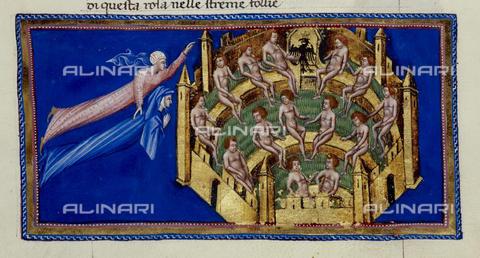 di questa rosa nelle streme foglie
ALINARI ALINARI
ALINARI ALINARI
ALINARI ALINARI